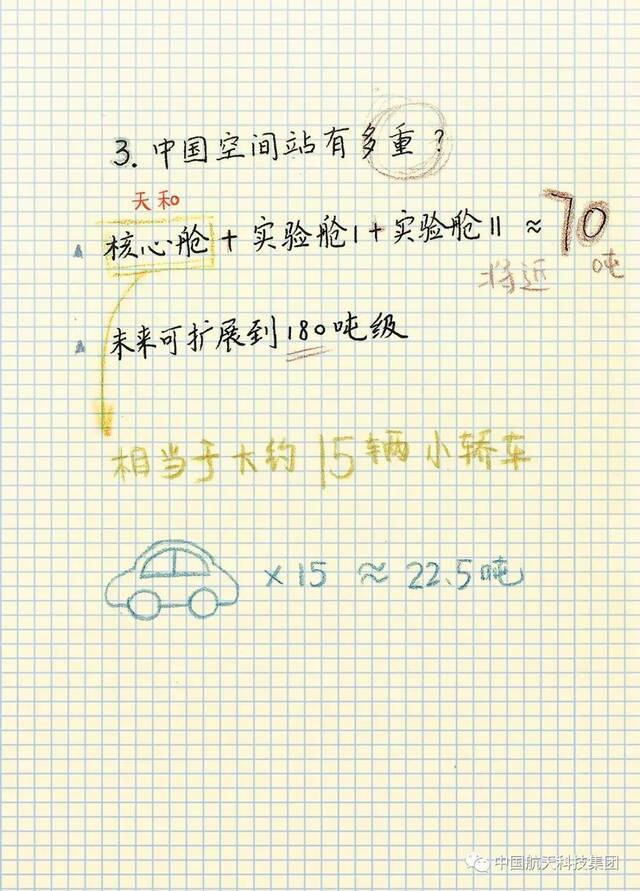 3. 中国空间站有多重？
天和
核心舱 + 实验舱I + 实验舱II ≈ 70
将近 吨
未来可扩展到180吨级
相当于大约15辆小轿车
×15 ≈ 22.5吨
中国航天科技集团